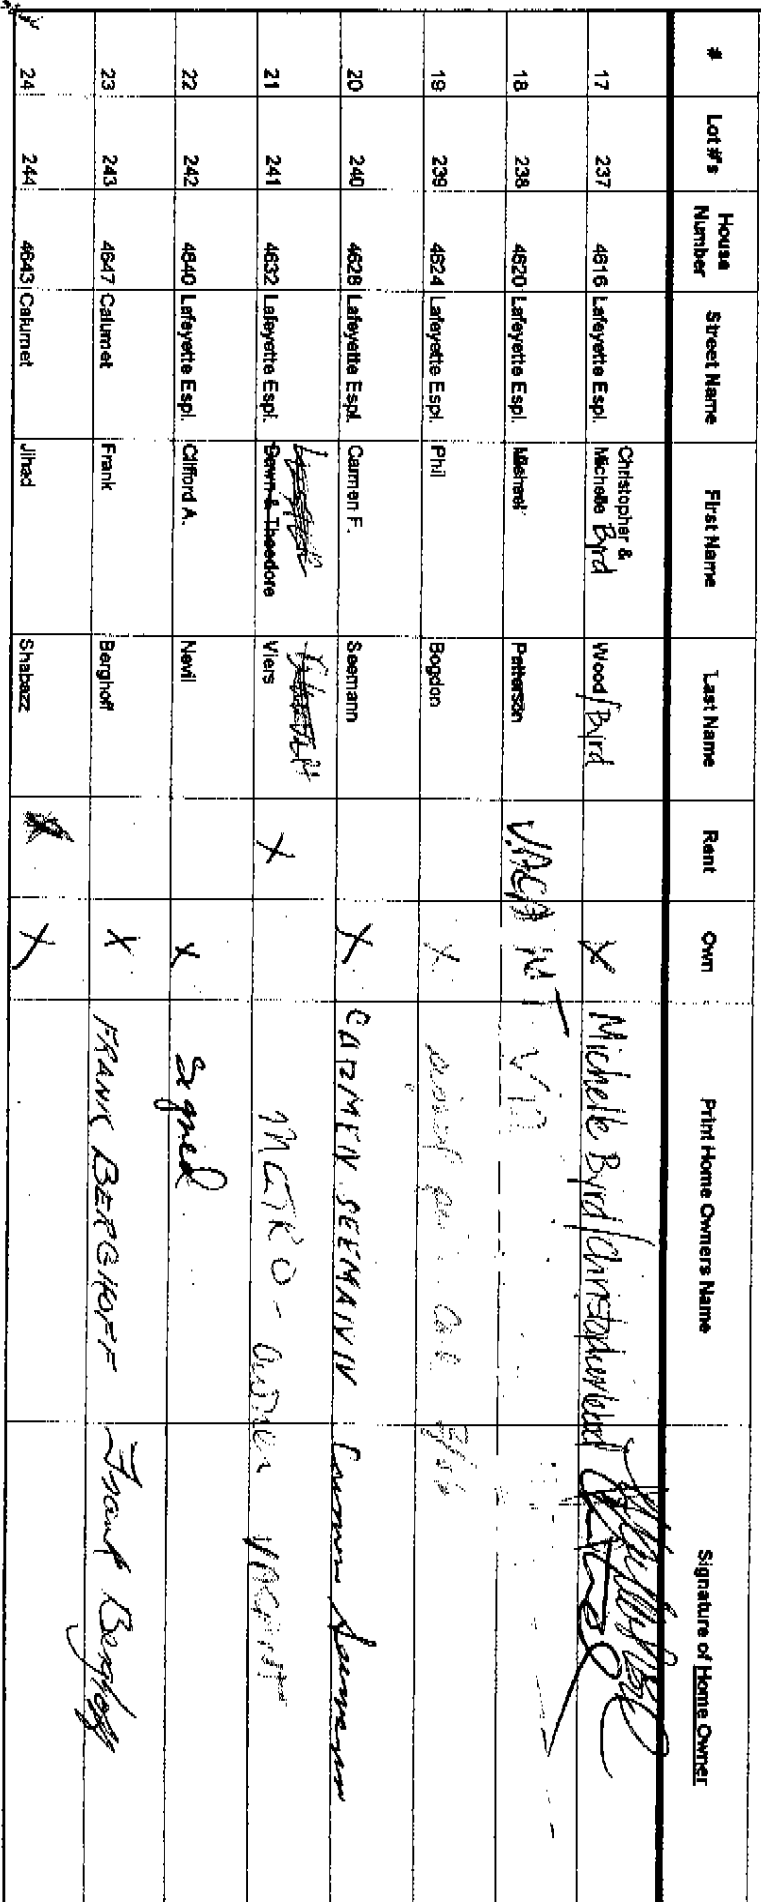 # Lot #'s House Number Street Name First Name Last Name Rent Own Print Home Owners Name Signature of Home Owner
17 237 4616 Lafeyette Espl. Christopher & Michelle Byrd Wood/Byrd X Michelle Byrd/
18 238 4620 Lafeyette Espl. Michael Patterson VACANT
19 239 4624 Lafeyette Espl. Phil Bogdon X
20 240 4628 Lafeyette Espl. Carmen F. Seemann X CARMEN SEEMANN Carmen Seemann
21 241 4632 Lafeyette Espl. Dawn & Theodore Viers X METRO - Owner VACANT
22 242 4640 Lafeyette Espl. Clifford A. Nevil X Signed
23 243 4647 Calumet Frank Berghoff X FRANK BERGHOFF Frank Berghoff
24 244 4643 Calumet Jihad Shabazz X